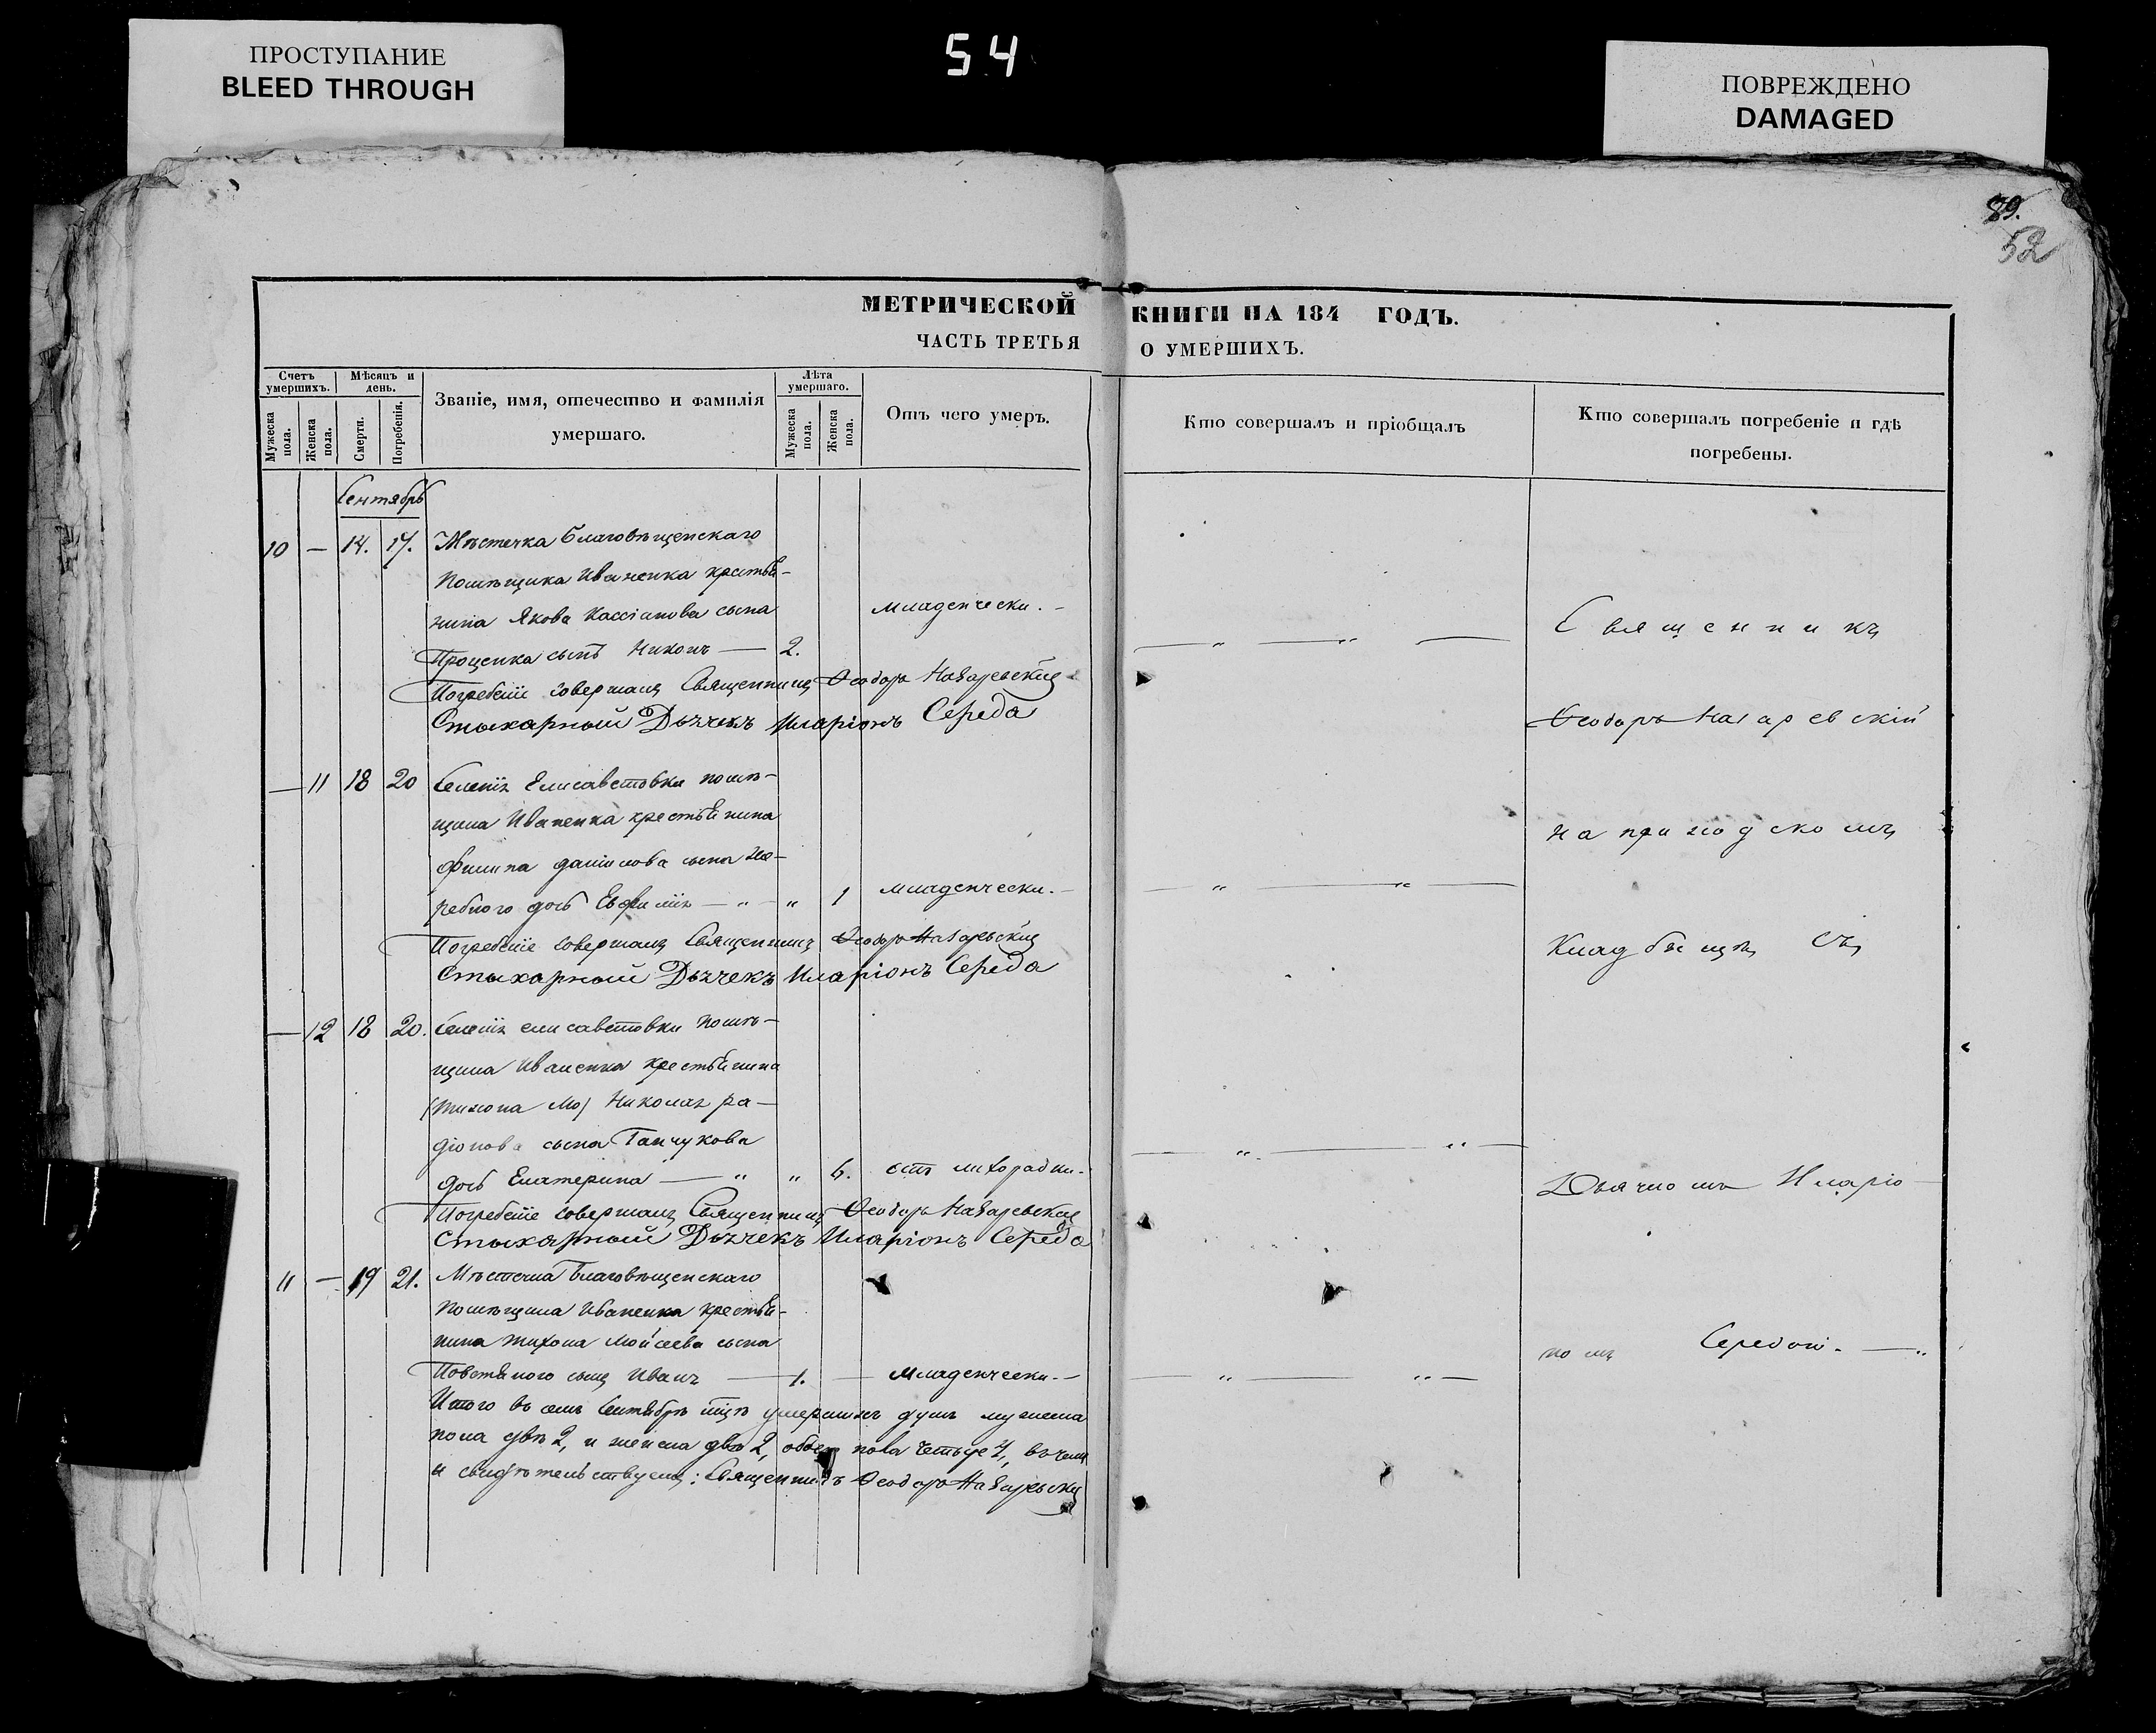 ПРОСТУПАНИЕ
BLEED THROUGH
54
ПОВРЕЖДЕНО
DAMAGED
89.
52
МЕТРИЧЕСКОЙ КНИГИ НА 184 ГОДЪ.
ЧАСТЬ ТРЕТЬЯ О УМЕРШИХЪ.
Счетъ умершихъ.
Мужеска пола.
Женска пола.
Мѣсяцъ и день.
Смерти.
Погребенія.
Званіе, имя, отечество и фамилія умершаго.
Лѣта умершаго.
Мужеска пола.
Женска пола.
Отъ чего умеръ.
Кто совершалъ и пріобщалъ
Кто совершалъ погребеніе и гдѣ погребены.
Сентябрь
10 — 14. 17. Мѣстечка Благовѣщенскаго
помѣщика Иваненка крестья-
нина Якова Кассіанова сына младенчески. —
Проценка сынъ Никонъ — 2.
Погребеніе совершалъ Священникъ Ѳеодоръ Назаревскій
Стыхарный Дьячекъ Иларіонъ Середа
— 11 18 20 Селенія Елисаветовки помѣ-
щика Иваненка крестьянина
Филипа Данилова сына Же-
ребного дочь Евфимія — " — " 1 младенчески. —
Погребеніе совершалъ Священникъ Ѳеодоръ Назаревскій
Стыхарный Дьячекъ Иларіонъ Середа
— 12 18 20. Селенія елисаветовки помѣ-
щика Иваненка крестьянина
Николая ра-
діонова сына Ганчукова
дочь Екатерина — " " 6. отъ лихорадки. —
Погребеніе совершалъ Священникъ Ѳеодоръ Назаревскій
Стыхарный Дьячекъ Иларіонъ Середа
11 — 19 21. Мѣстечка Благовѣщенскаго
помѣщика Иваненка крестья-
нина Тихона Мойсеева сына
Повстяного сынъ Иванъ — 1. — Младенчески. —
Итого въ семъ Сентябрѣ м̃цѣ умершихъ душъ мужеска
пола двѣ 2, и женска двѣ 2, обоего пола четыре 4, въ чемъ
и свидѣтельствуемъ: Священникъ Ѳеодоръ Назаревскій
Священникъ
Ѳеодоръ Назаревскій
на приходскомъ
Кладбищѣ Съ
Дьячкомъ Иларіо-
номъ Середой. — "